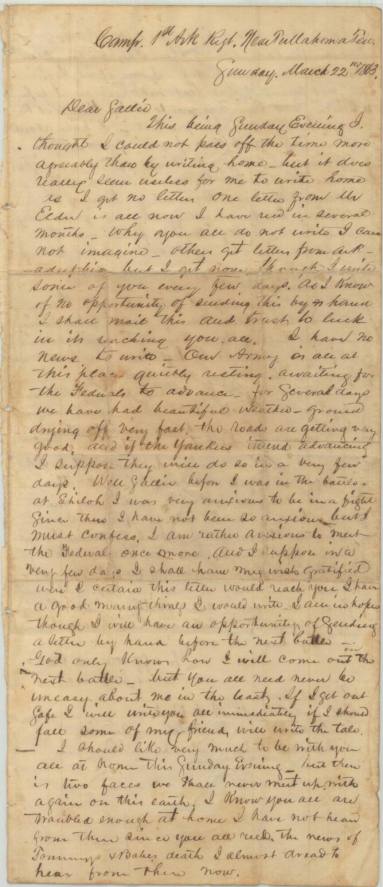 Camp. 1st Ark Regt. Near Tullahoma Ten.
Sunday. March 22nd 1863.
Dear Gallie
This being Sunday Evening I.
thought I could not pass off the time more
agreably than by writing home - but it does
really seem useless for me to write home
as I get no letters One letter from Mr
Elder is all now I have recd in several
months - Why you all do not write I can
not imagine - others get letters from Ark-
adelphia but I get none, though I write
some of you every few days. As I know
of no opportunity of sending this by hand
I shall mail this and trust to luck
in its reaching you all. I have no
news to write - Our Army is all at
this place quietly resting. awaiting for
the Federals to advance - for Several days
we have had beautiful weather - ground
drying off very fast, the road are getting very
good, and if the Yankees intend advancing
I suppose they will do so in a very few
days. Well Gallie before I was in the battle.
at Shiloh I was very anxious to be in a fight
Since then I have not been so anxious but I
must confess, I am rather anxious to meet
the Federal once more. And I suppose in a
very few days I shall have my wish gratified
were I certain this letter would reach you I have
a good many things I would write I am in hopes
though I will have an opportunity of Sending
a letter by hand before the next battle -
God only Knows how I will come out on the
next battle - but you all need never be
uneasy about me in the least, If I get out
Safe I will write you all immediately if I should
fall some of my friends will write the tale.
- I should like very much to be with you
all at home this Sunday Evening - but there
is two faces we shall never meet up with
again on this earth, I Know you all are
troubled enough at home I have not heard
from them since you all recd the news of
Tommy & Babes death I almost dread to
hear from there now.